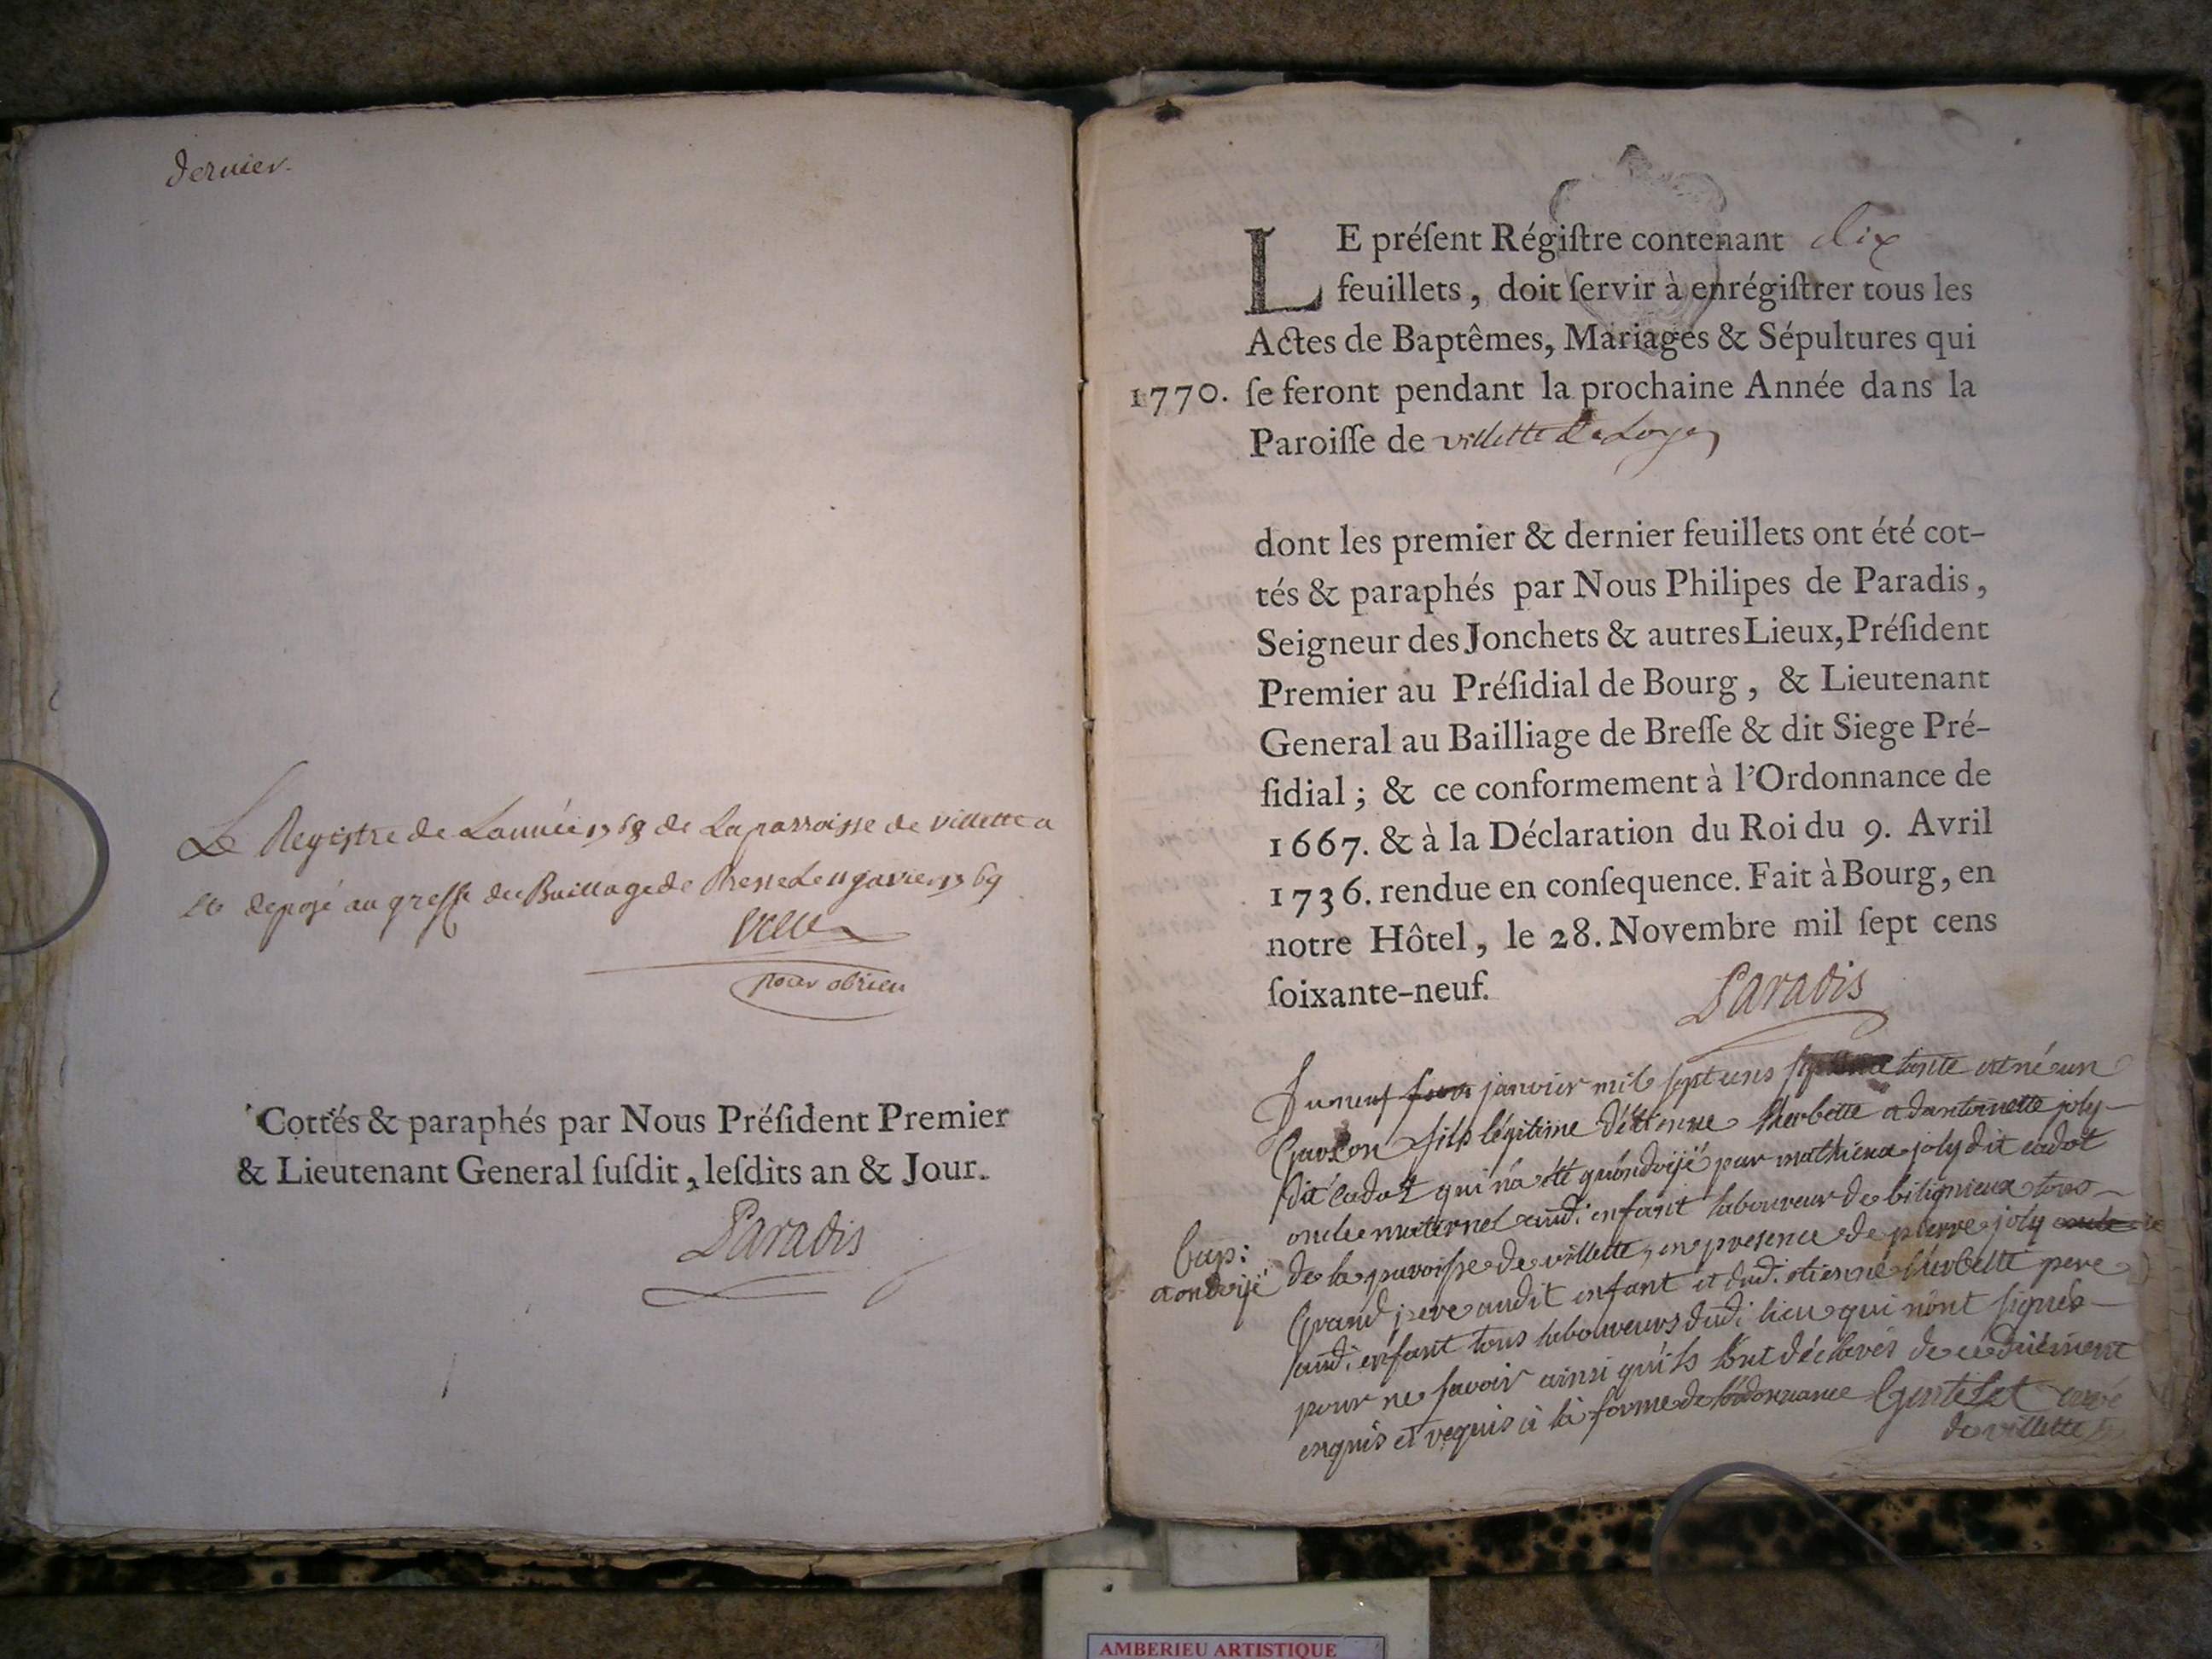 dernier.
Le Registre de Lannée 1768 de La parroisse de villette a
ete deposé au greffe du Baillage de Bresse Le 11 janvier 1769
pour obrien
Cottés & paraphés par Nous Président Premier
& Lieutenant General ſuſdit, leſdits an & Jour.
Paradis
LE préſent Régiſtre contenant dix
feuillets, doit ſervir à enrégiſtrer tous les
Actes de Baptêmes, Mariages & Sépultures qui
1770. ſe feront pendant la prochaine Année dans la
Paroiſſe de villette de Loyes
dont les premier & dernier feuillets ont été cot-
tés & paraphés par Nous Philipes de Paradis,
Seigneur des Jonchets & autres Lieux, Préſident
Premier au Préſidial de Bourg, & Lieutenant
General au Bailliage de Breſſe & dit Siege Pré-
ſidial; & ce conformement à l'Ordonnance de
1667. & à la Déclaration du Roi du 9. Avril
1736. rendue en conſequence. Fait à Bourg, en
notre Hôtel, le 28. Novembre mil ſept cens
ſoixante-neuf.
Paradis
Du neuf janvier mil sept cens tante est né un
Garson fils légitime d'étienne herbette et dantoinette joly
dit cadot qui n'a été qu'ondoijé par mathieu joly dit cadot
oncle maternel aud. enfant laboureur de bilignieux tous
de la paroisse de villette, en presence de pierre joly
Grand pere audit enfant et dud. etienne herbette pere
aud. enfant tous laboureurs dud. lieu qui n'ont signés
pour ne savoir ainsi qu'ils l'ont déclarés de ce duement
enquis et requis à la forme de l'ordonnance Gentelet curé
de villette
bap:
a ondoijé
AMBERIEU ARTISTIQUE